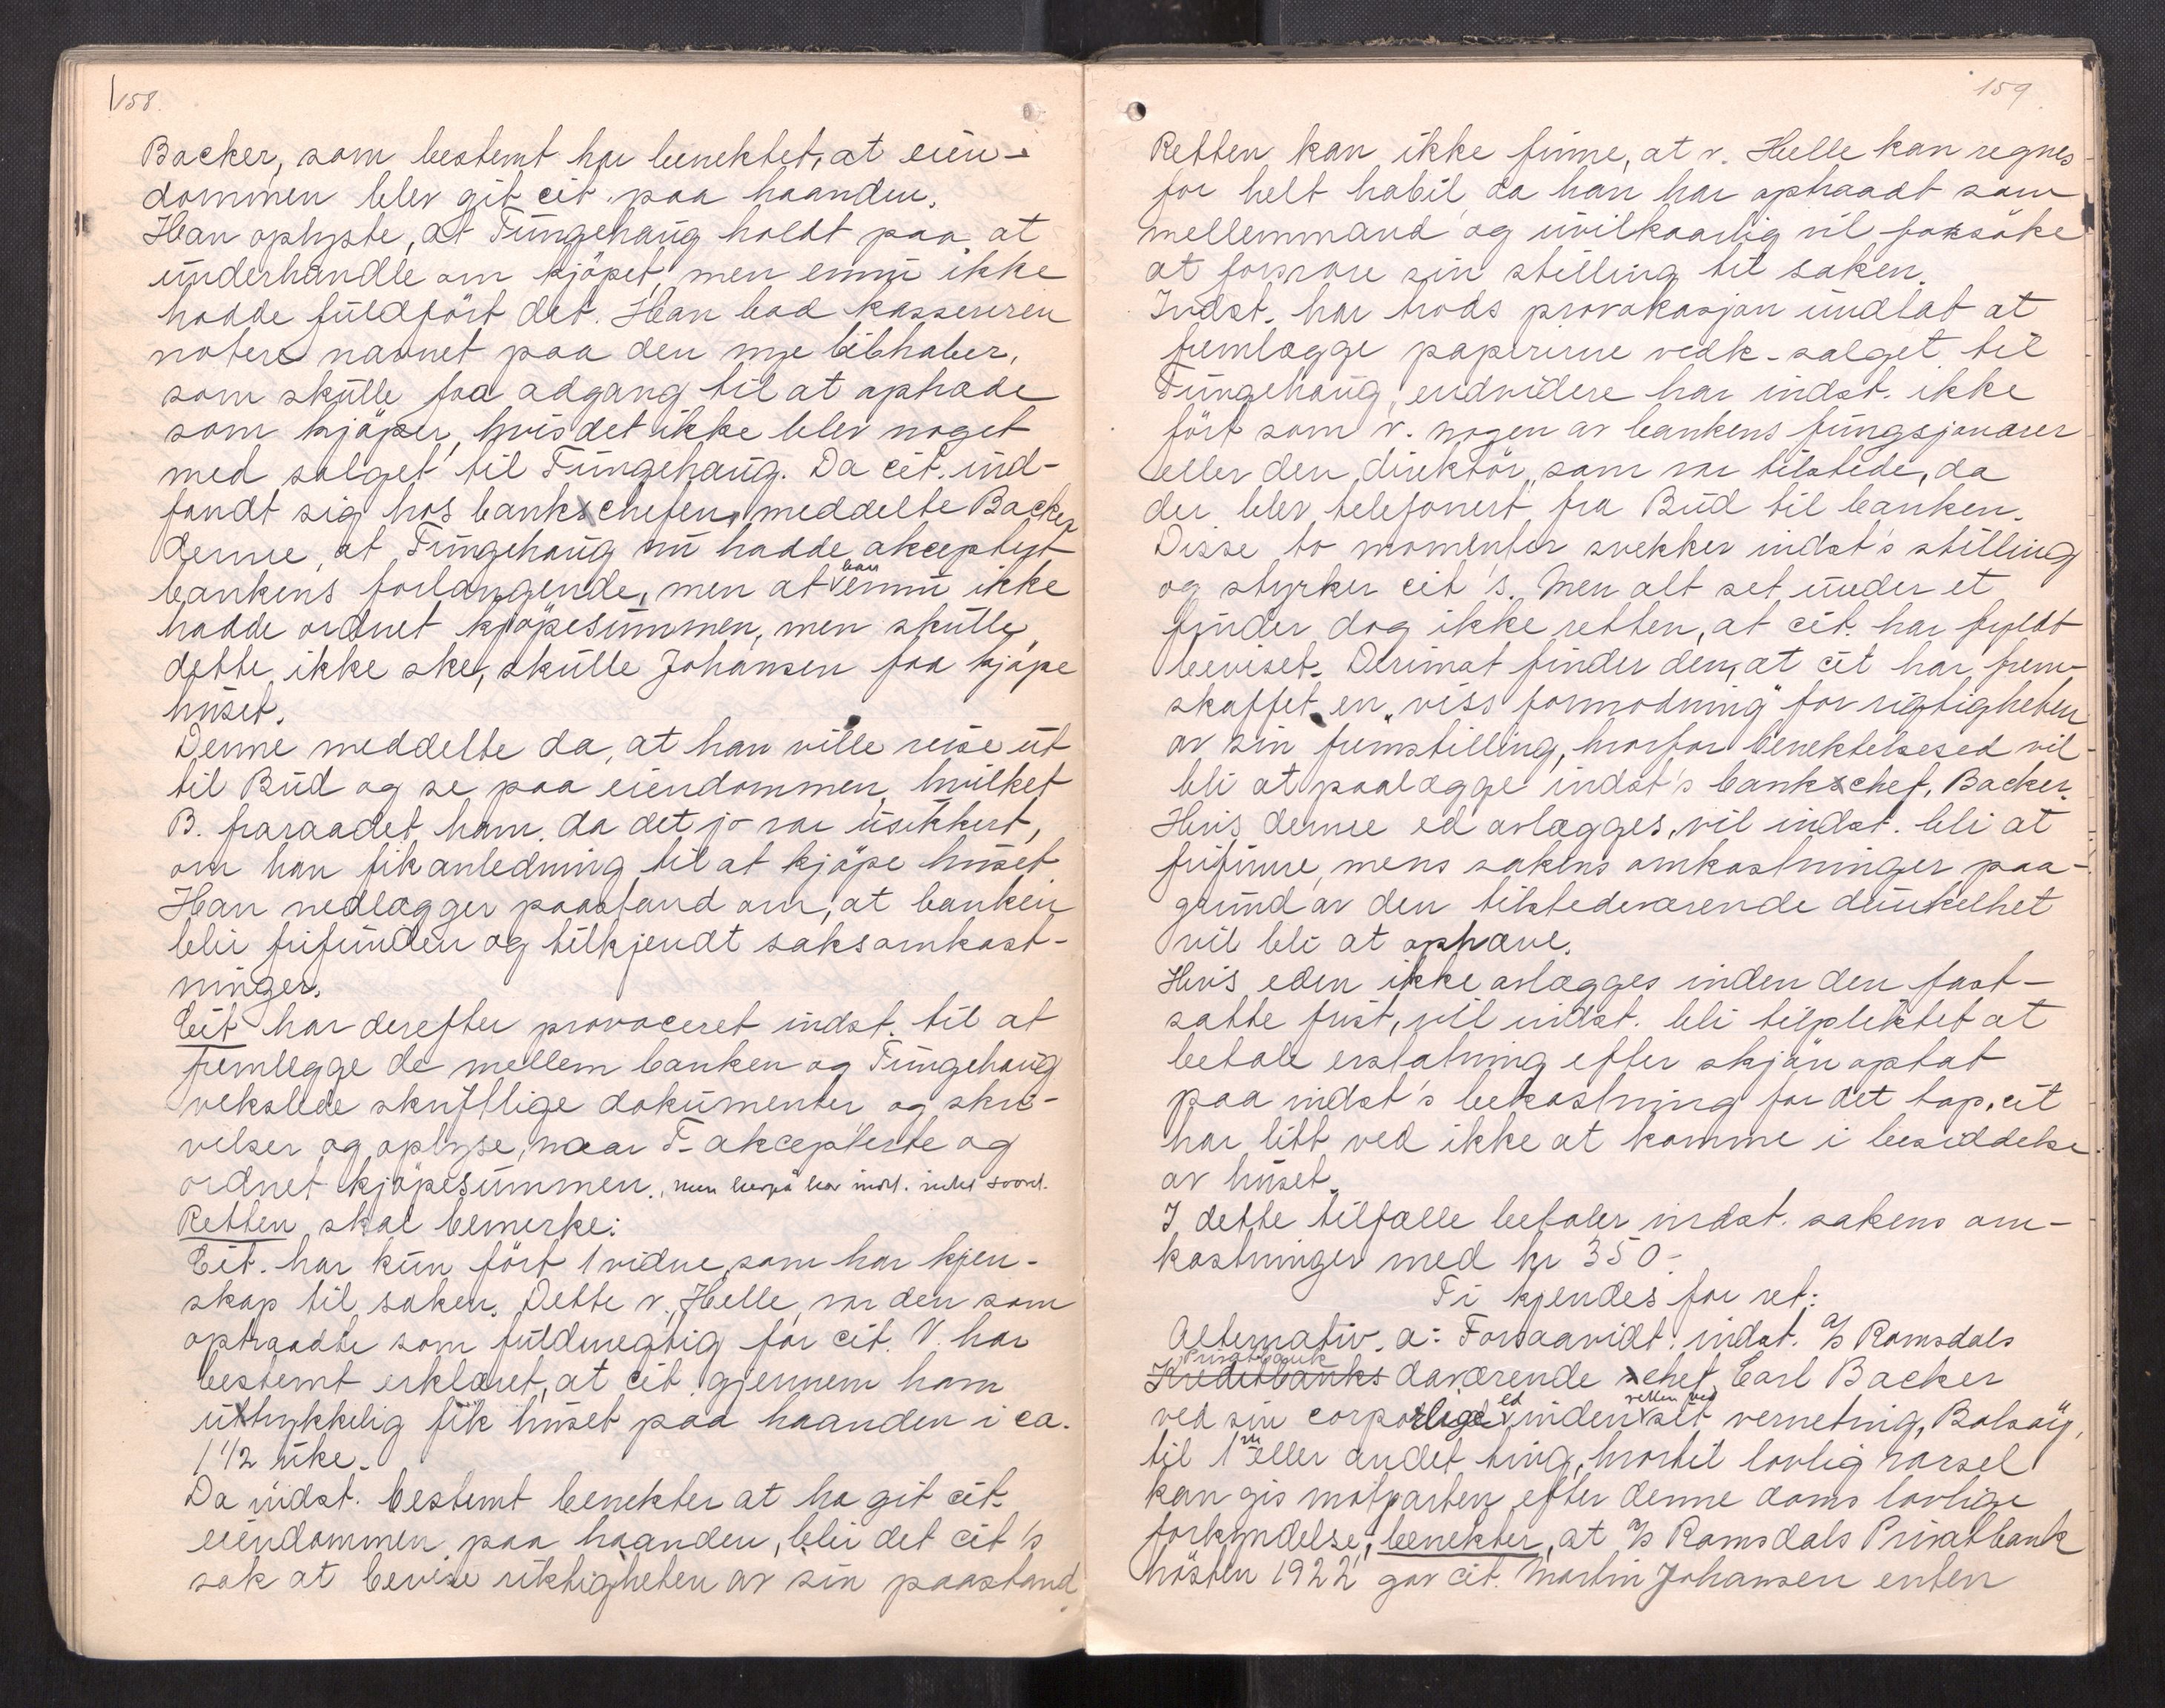 158.
Backer, som bestemt har benektet, at eien-
dommen blev git cit. paa haanden.
Han oplyste, at Tungehaug holdt paa at
underhandle om kjöpet, men ennu ikke
hadde fuldfört det. Han bad kassereren
notere navnet paa den nye libhaber,
som skulle faa adgang til at optræde
som kjöper, hvis det ikke blev noget
med salget til Tungehaug. Da cit. ind-
fandt sig hos bankchefen, meddelte Backer
denne, at Tungehaug nu hadde akceptert
bankens forlangende, men at han ennu ikke
hadde ordnet kjöpesummen, men skulle
dette ikke ske, skulle Johansen faa kjöpe
huset.
Denne meddelte da, at han ville reise ut
til Bud og se paa eiendommen, hvilket
B. fraraadet ham, da det jo var usikkert,
om han fik anledning til at kjöpe huset.
Han nedlægger paastand om, at banken
blir frifunden og tilkjendt saksomkost-
ninger.
Cit har derefter provoceret indst. til at
fremlegge de mellem banken og Tungehaug
vekslede skriftlige dokumenter og skri-
velser og oplyse, naar T. akcepterte og
ordnet kjöpesummen, men herpå har indst. intet svart.
Retten skal bemerke:
Cit. har kun fört 1 vidne, som har kjen-
skap til saken. Dette v., Helle, var den som
optraadte som fuldmegtig for cit. V. har
bestemt erklæret, at cit. gjennem ham
uttrykkelig fik huset paa haanden i ca.
1 1/2 uke.
Da indst. bestemt benekter at ha git cit.
eiendommen paa haanden, blir det cit's
sak at bevise riktigheten av sin paastand.
159.
Retten kan ikke finne, at v. Helle kan regnes
for helt habil, da han har optraadt som
mellemmand og uvilkaarlig vil forsöke
at forsvare sin stilling til saken.
Indst. har trods provokasjon undlat at
fremlægge papirerne vedk. salget til
Tungehaug, endvidere har indst. ikke
fört som v. nogen av bankens fungsjonærer
eller den direktör, som var tilstede, da
der blev telefonert fra Bud til banken.
Disse to momenter svekker indst's stilling
og styrker cit's. Men alt set under et
finder dog ikke retten, at cit. har fyldt
beviset. Derimot finder den, at cit har frem-
skaffet en "viss formodning" for rigtigheten
av sin fremstilling, hvorfor benektelsesed vil
bli at paalægge indst's bankchef, Backer.
Hvis denne ed avlægges, vil indst. bli at
frifinne, mens sakens omkostninger paa-
grund av den tilstedeværende dunkelhet
vil bli at ophæve.
Hvis eden ikke avlægges inden den fast-
satte frist, vil indst. bli tilpliktet at
betale erstatning efter skjön optat
paa indst's bekostning for det tap, cit
har litt ved ikke at komme i besiddelse
av huset.
I dette tilfælle betaler indst. sakens om-
kostninger med kr 350-
Ti kjendes for ret:
Alternativ. a: Forsaavidt indst. A/S Ramsdals
Privatbank
Kreditbanks daværende chef Carl Backer
ved sin corporlige ed inden retten ved sit verneting, Bolsöy,
til 1ste eller andet ting, hvortil lovlig varsel
kan gis motparten efter denne doms lovlige
forkyndelse, benekter, at A/S Ramsdals Privatbank
hösten 1922 gav cit. Martin Johansen enten